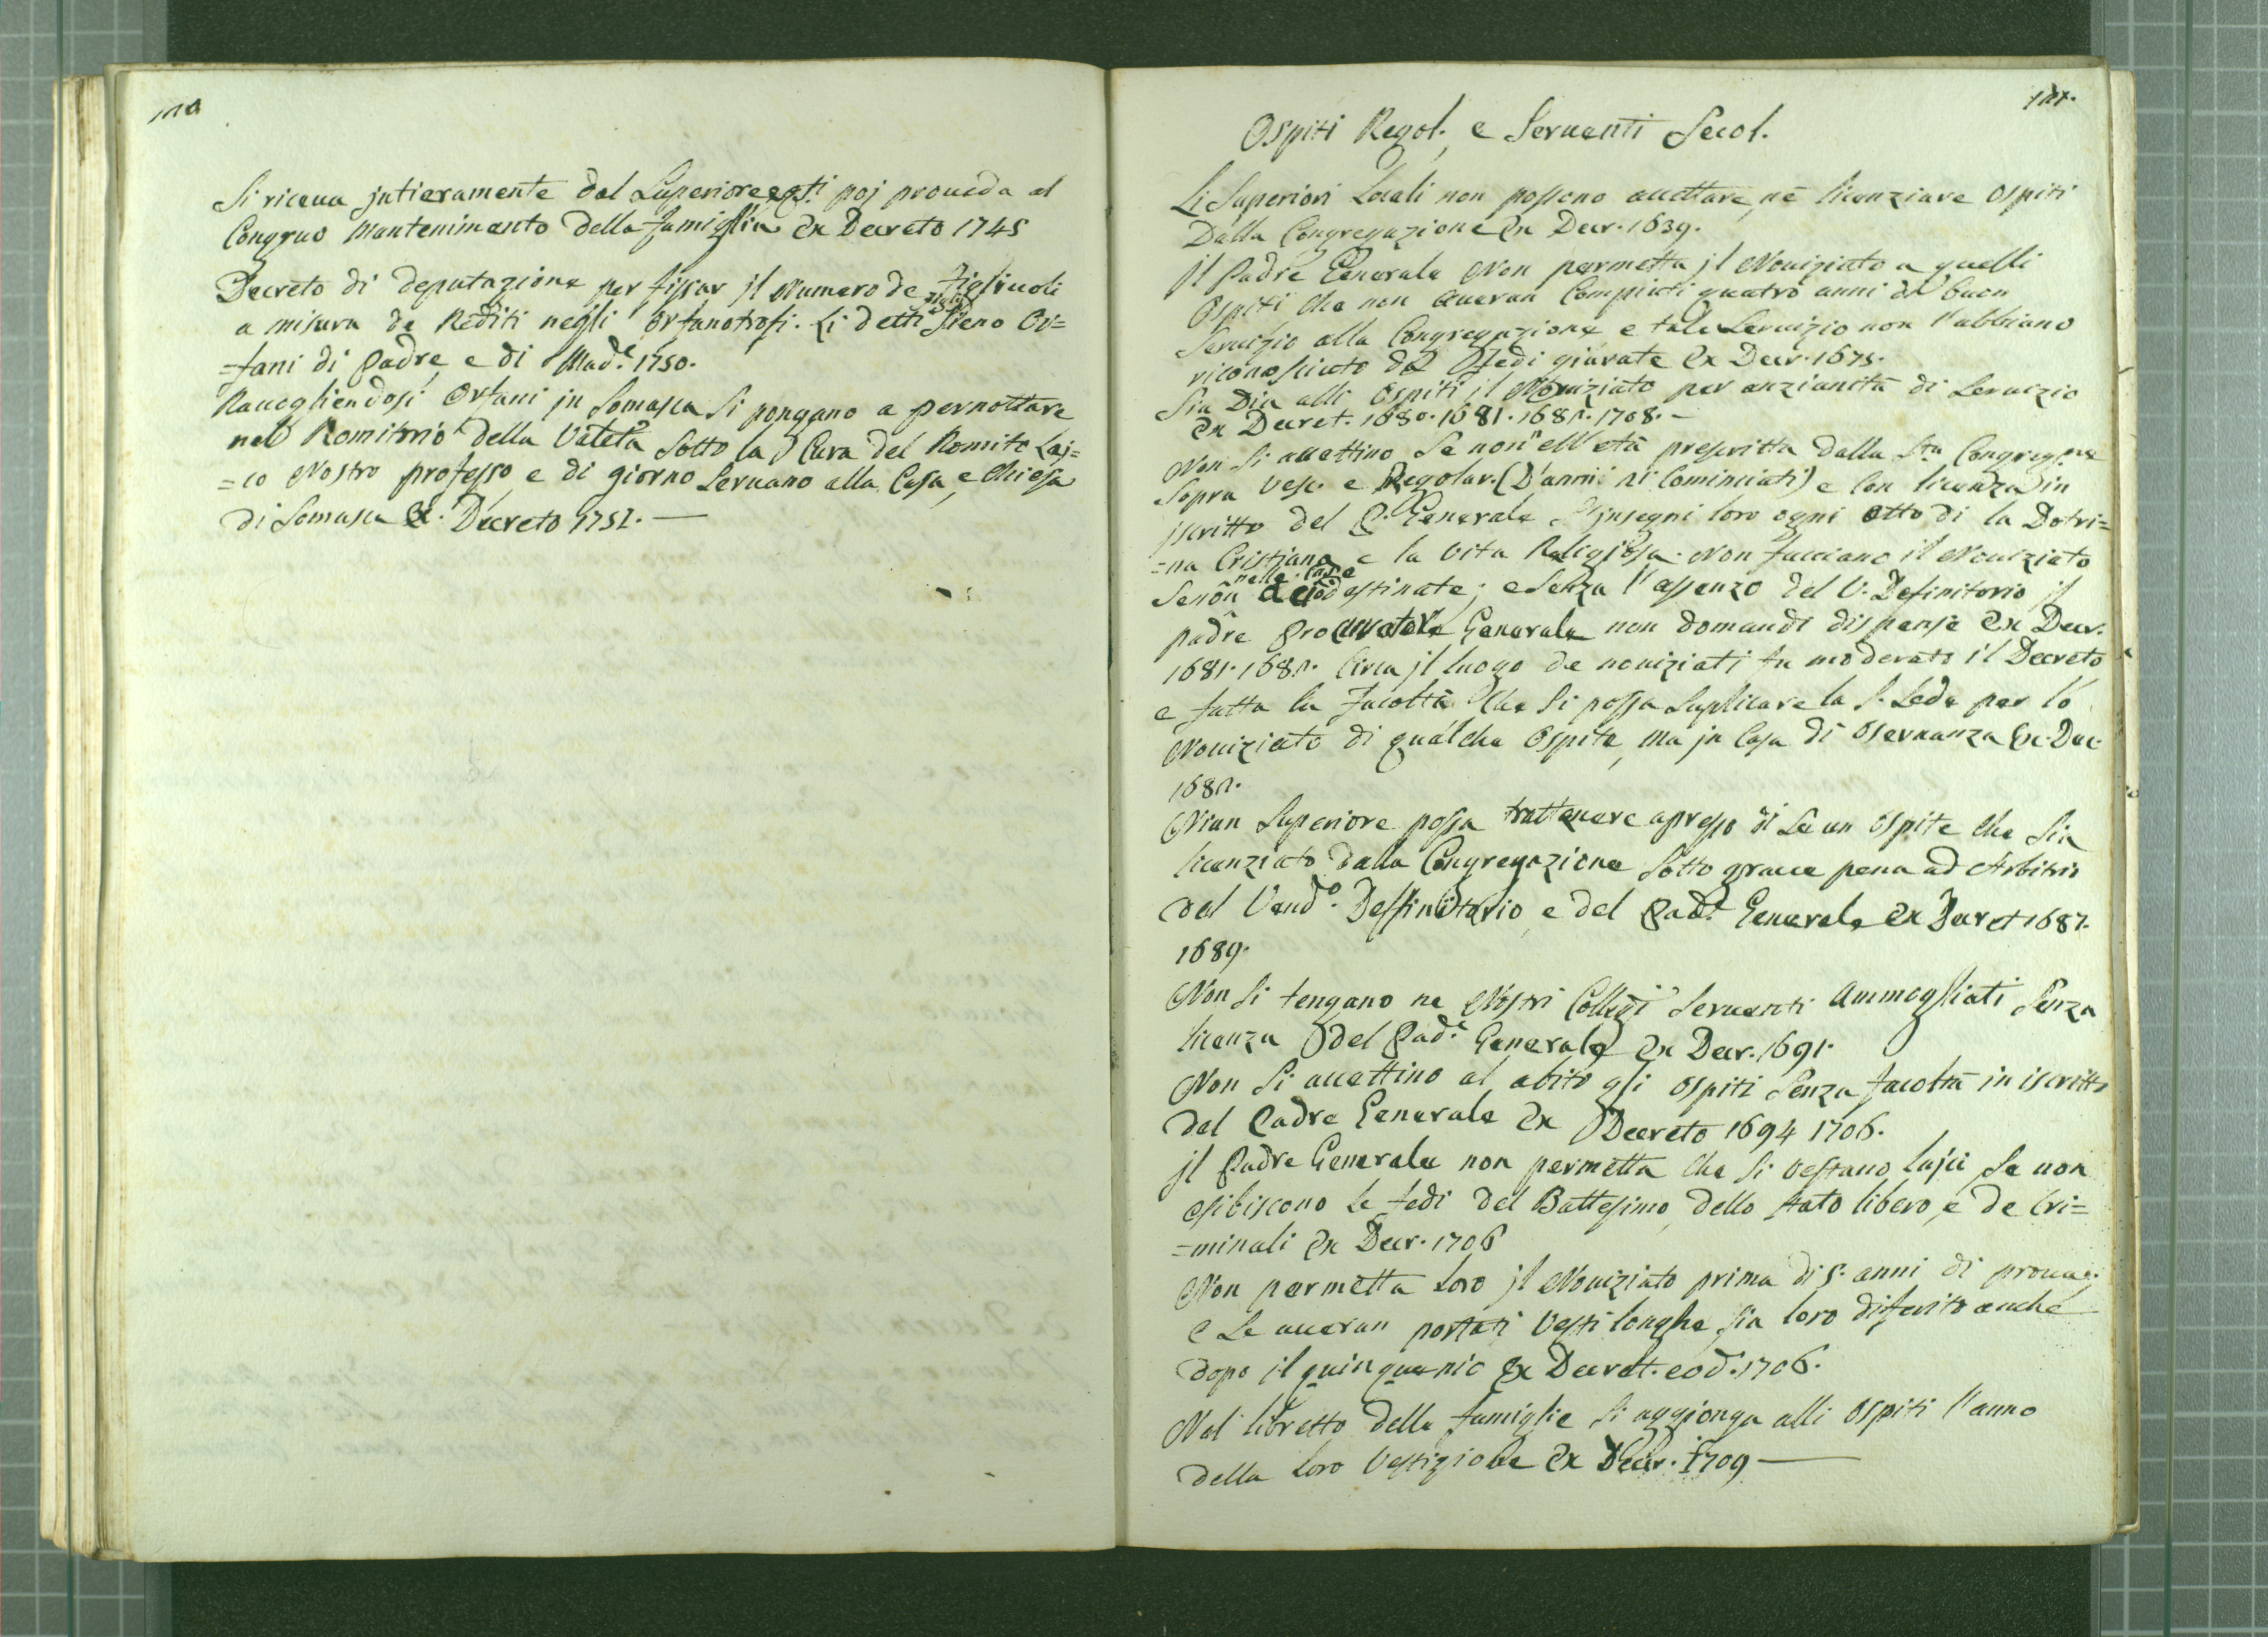 Si riceva jntieramente dal Superiore, e q.sti poj proveda al
Congruo Mantenimento della famiglia ex Decreto 1745
Decreto di deputazione per fissar jl Numero de figliuoli
a misura de Rediti negli orfanotrofi. Li detti figli sieno Or=
=fani di Padre, e di Mad.e 1750.
Raccogliendosi Orfani jn Somasca si pongano a pernottare
nel Romitorio della Valetta sotto la Cura del Romito Laj=
=co Nostro professo, e di giorno servano alla Casa, e Chiesa
di Somasca ex Decreto 1752.
121.
Ospiti Regol., e Servanti Secol.
Li Superiori Locali non possono accettare, ne licenziare ospiti
Dalla Congregazione ex Decr. 1639.
Jl Padre Generale Non permetta jl Noviziato a quelli
Ospiti che non averan Compiuti quatro anni di buon
Servizio alla Congregazione e tale Servizio non l'abbiano
riconosciuto da Fedi giurate ex Decr. 1675.
Sia Dia alli ospiti jl Noviziato per anzianità di Servizio
ex Decret. 1680. 1681. 1682. 1708. —
Non si accettino se non nell'età prescritta dalla S.ta Congreg.ne
sopra Vesc. e Regolar. (D'anni 21 Cominciati) e con licenza in
jscritto del P. Generale S'jnsegni loro ogni otto di la Dotri=
=na Cristiana e la Vita Religiosa. Non facciano il Noviziato
senon nelle Case destinate; e senza l'assenzo del V. Definitorio jl
padre Procuratore Generale non domandi dispense ex Decr.
1681. 1682. Circa jl luogo de noviziati fu moderato il Decreto
e fatta la facoltà che si possa suplicare la S. Sede per lo
Noviziato di qualche Ospite, ma jn Casa di oservanza Ex. Dec.
1682.
Niun Superiore possa trattenere apresso di se un ospite che sia
licenziato dalla Congregazione sotto grave pena ad Arbitrio
del Vend.o Deffinitorio, e del Pad.e Generale ex Decret 1687.
1689.
Non si tengano ne Nostri Collegi Servanti Ammogliati senza
licenza del Pad.e Generale ex Decr. 1691.
Non si accettino al abito gli ospiti senza facoltà in iscritto
del Padre Generale ex Decreto 1694 1706.
jl Padre Generale non permetta che si vestano lajci se non
esibiscono le fedi del Battesimo, dello stato libero, e de Cri=
=minali ex Decr. 1706
Non permetta loro jl Noviziato prima di 5. anni di prova;
e se averan portati vesti longhe, sia loro diferito anche
dopo il quinquenio ex Decret. eod. 1706.
Nel libretto delle famiglie si aggionga alli ospiti l'anno
della loro Vestizione ex Decr. 1709 —